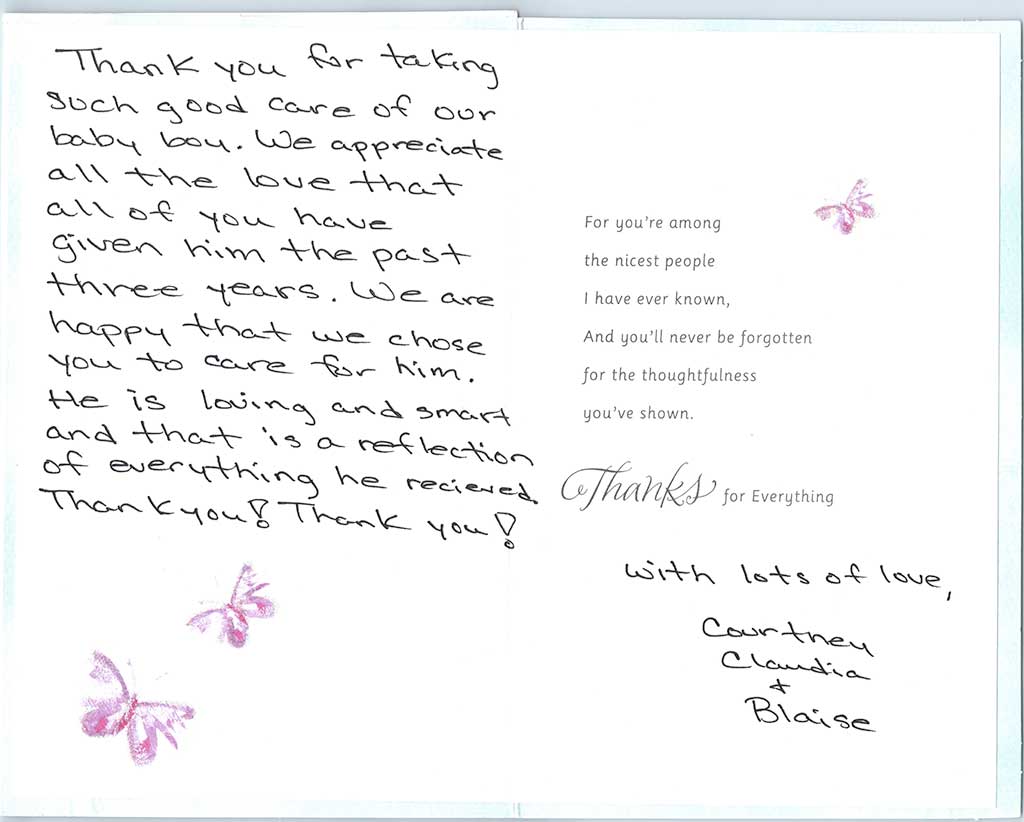 Thank you for taking
such good care of our
baby boy. We appreciate
all the love that
all of you have
given him the past
three years. We are
happy that we chose
you to care for him.
He is loving and smart
and that is a reflection
of everything he recieved.
Thank you! Thank you!
For you're among
the nicest people
I have ever known,
And you'll never be forgotten
for the thoughtfulness
you've shown.
Thanks for Everything
with lots of love,
Courtney
Claudia
+
Blaise